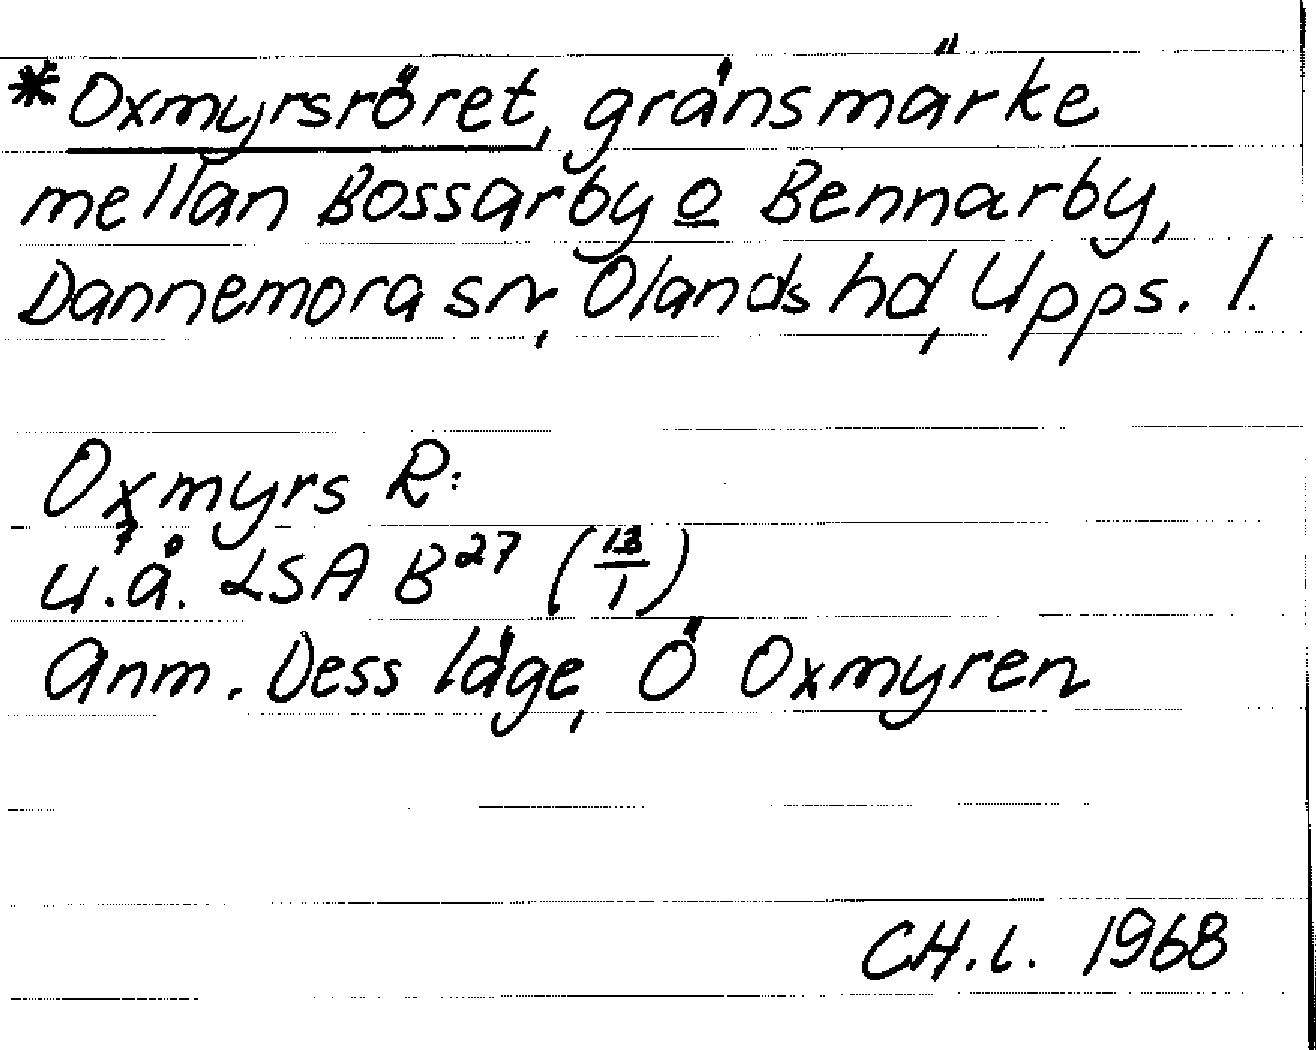 *Oxmyrsröret, gränsmärke
mellan Bossarby o Bennarby,
Dannemora sn, Olands hd, Upps. l.
Oxmyrs R:
u.å. LSA B²⁷ (13/1)
Anm. Dess läge, Ö Oxmyren
CH.L. 1968